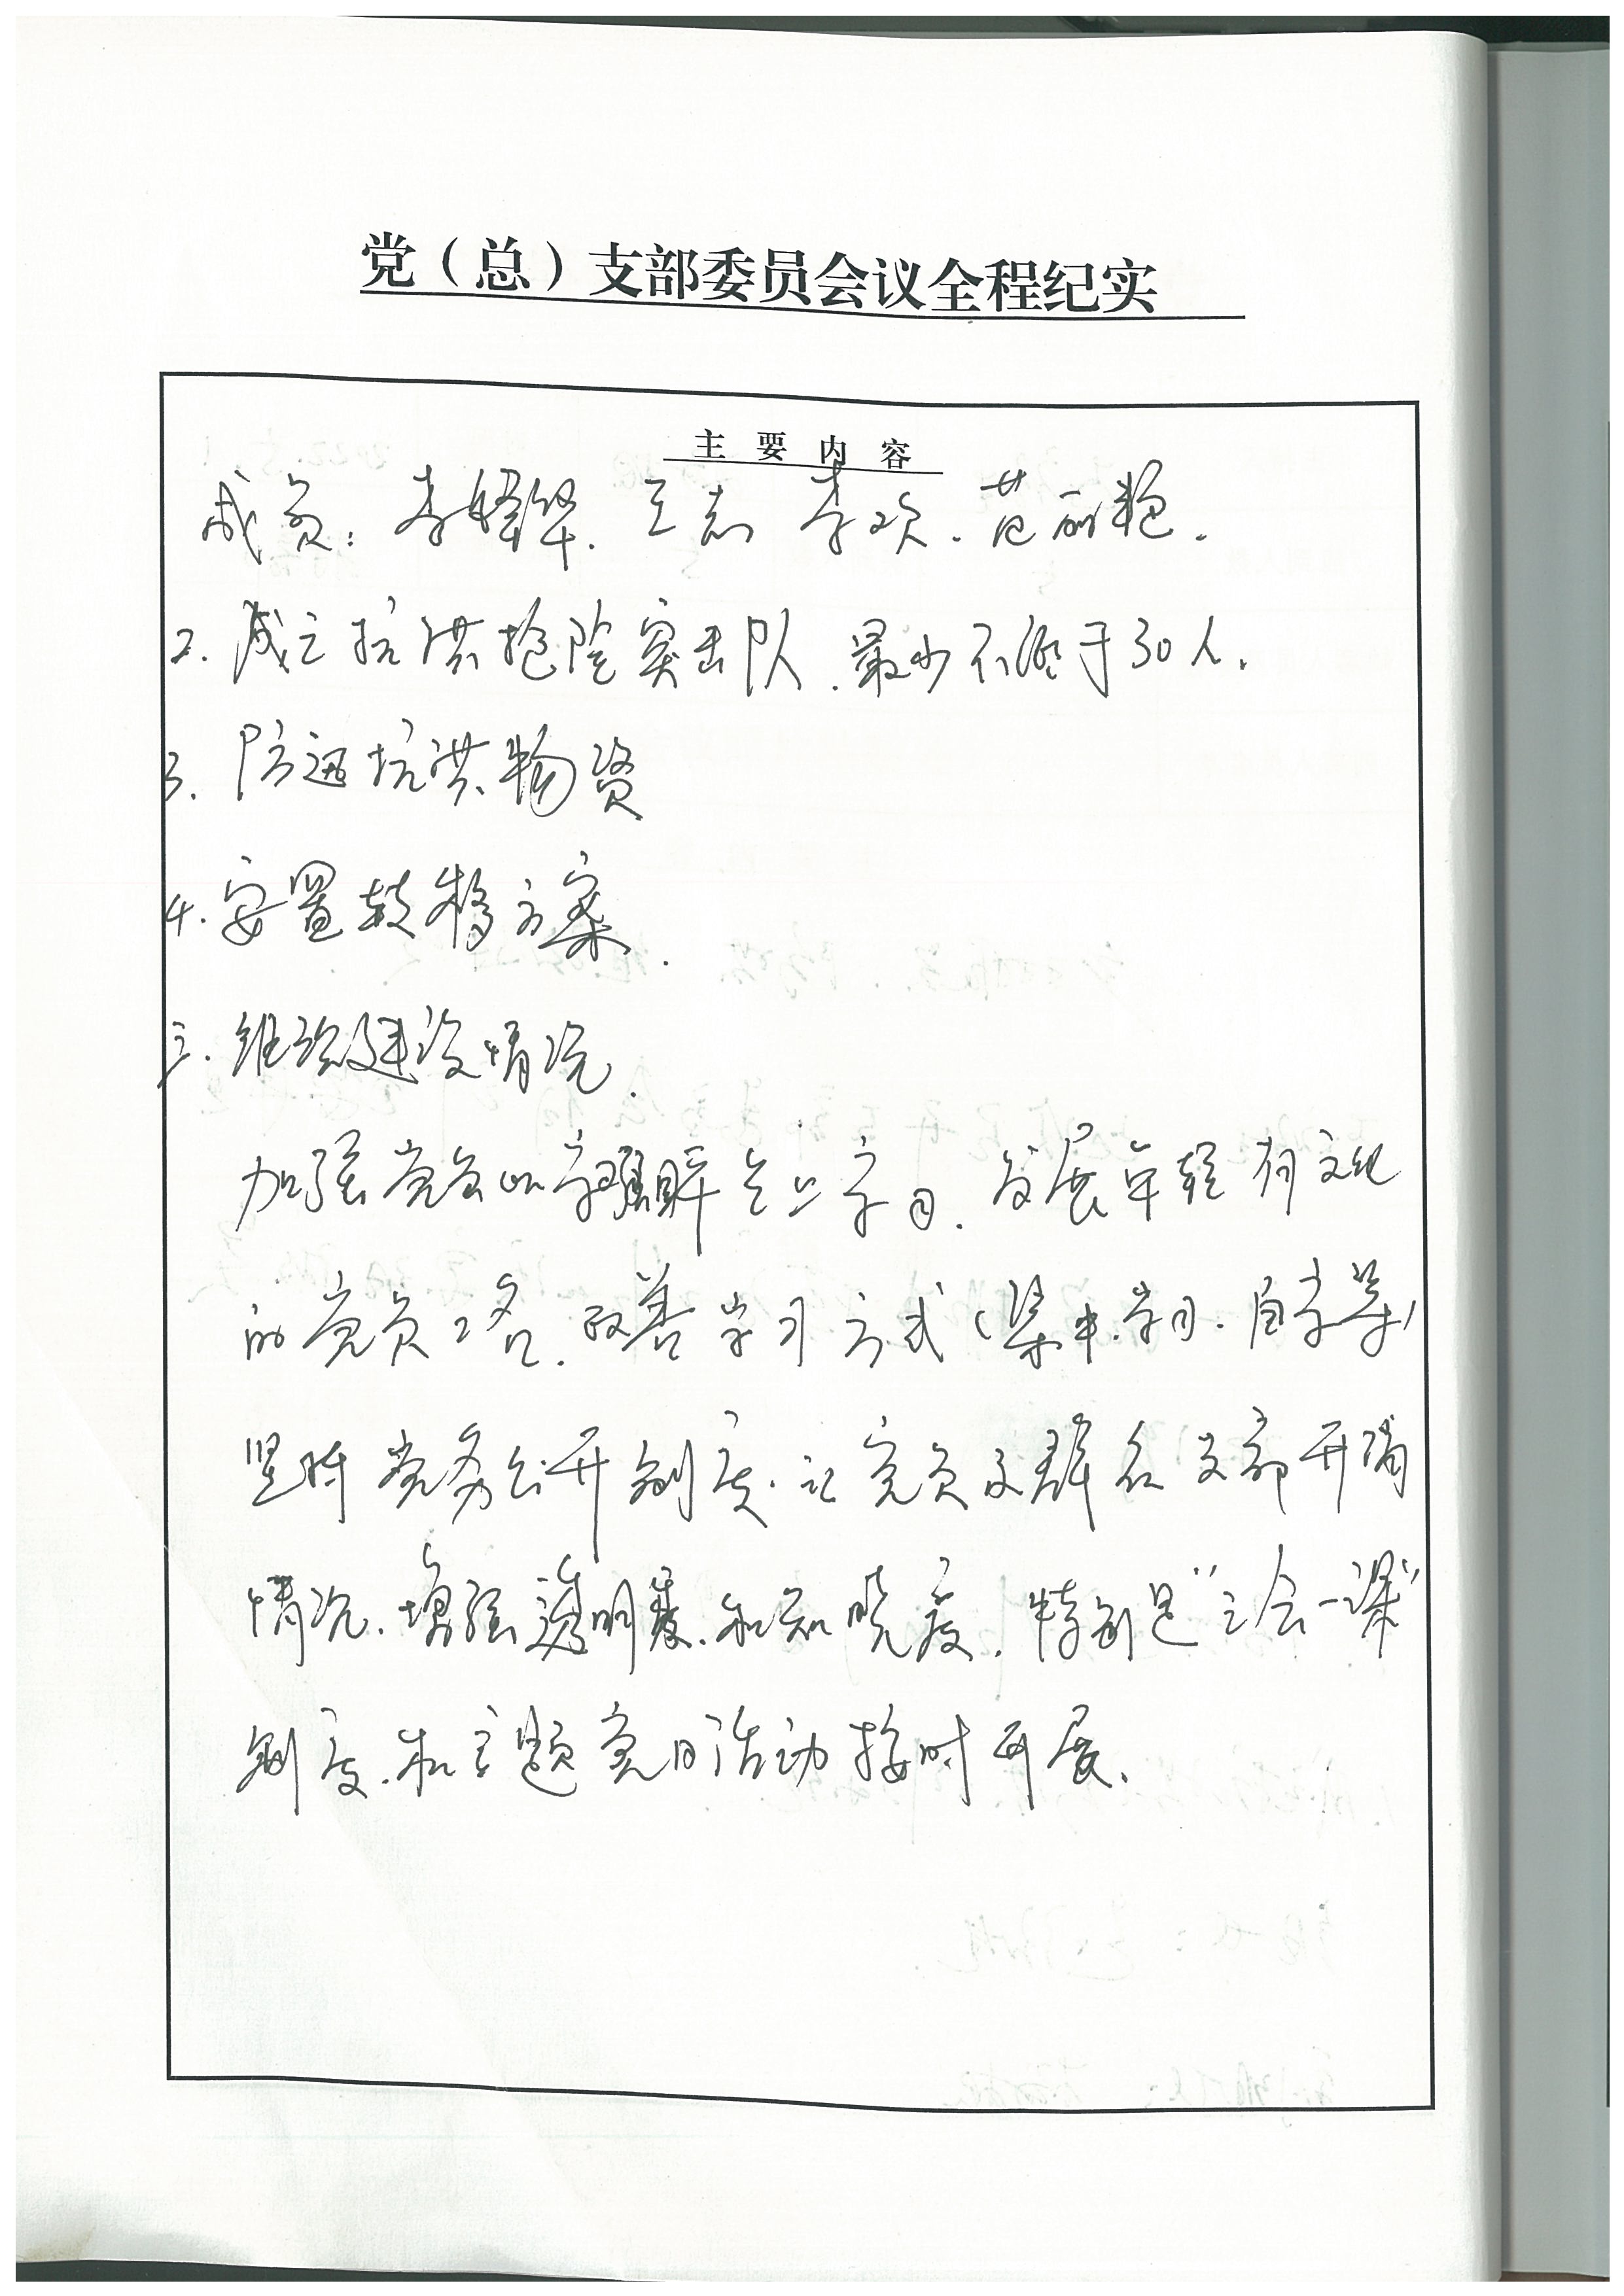 党（总）支部委员会议全程纪实
主要内容
成员：李 华、王志 李欢、范丽艳.
2. 成立抗洪抢险突击队、最少不低于30人.
3. 防汛抗洪物资
4. 安置转移方案.
三. 组织建设情况.
加强党员 学习、发展年轻有文化
的党员2名、改善学习方式（集中学习、自学等）
坚持党务公开制度、让党员及群众 支部开 
情况、增强透明度、和知晓度、特别是“三会一课”
制度、和主题党日活动按时开展.